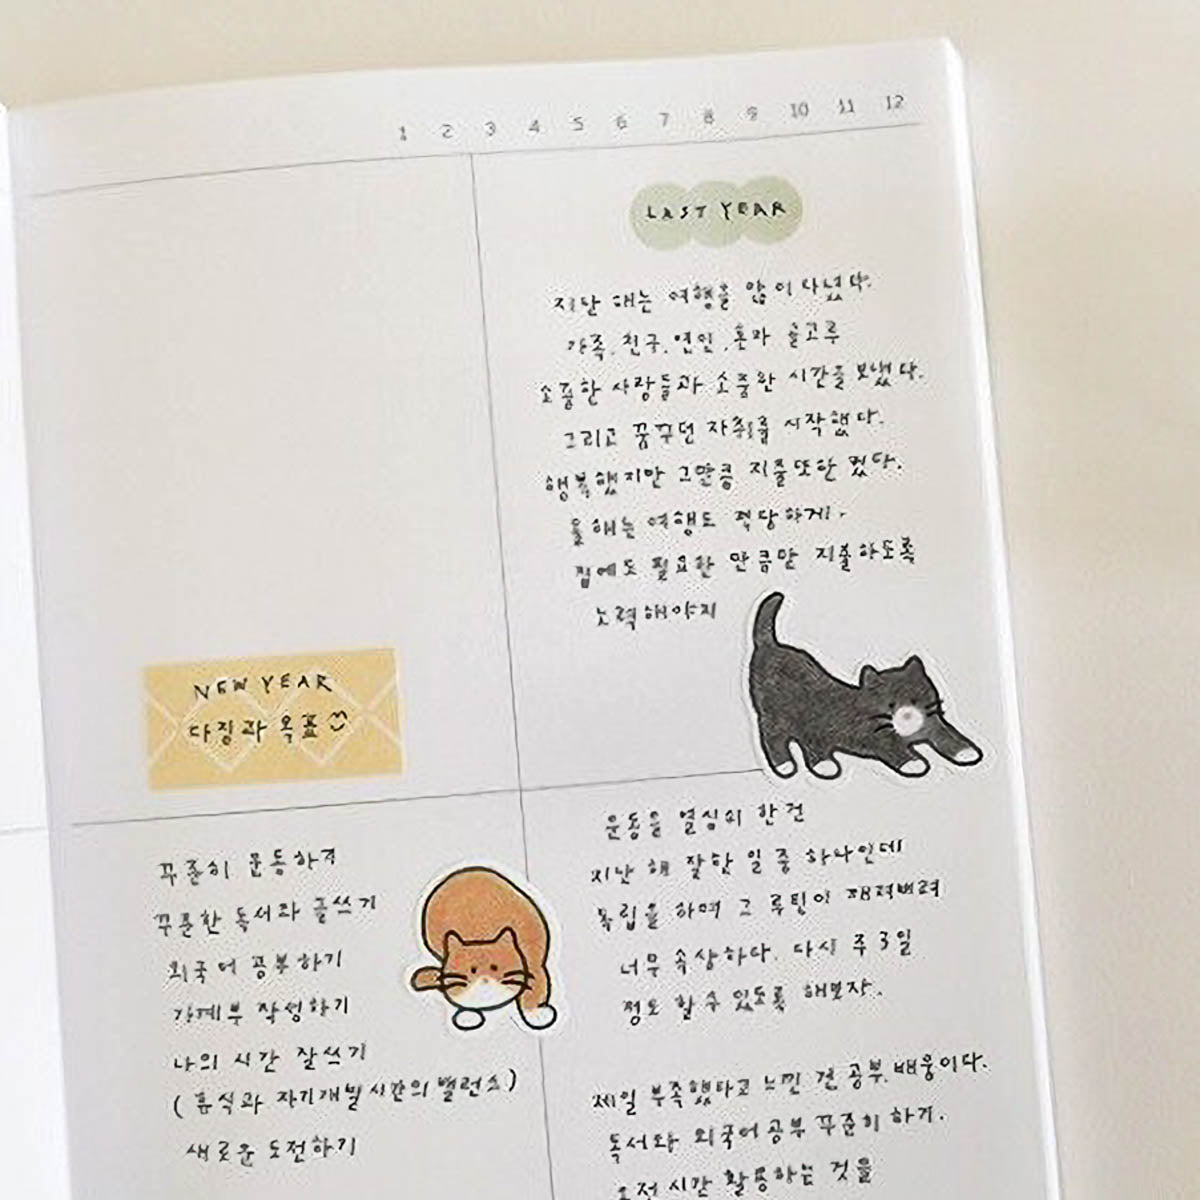 1 2 3 4 5 6 7 8 9 10 11 12
LAST YEAR
지난 해는 여행을 많이 다녔다.
가족, 친구, 연인, 혼자 골고루
소중한 사람들과 소중한 시간을 보냈다.
그리고 꿈꾸던 자취를 시작했다.
행복했지만 그만큼 지출또한 컸다.
올해는 여행도 적당하게,
집에도 필요한 만큼만 지출하도록
노력해야지
NEW YEAR
다짐과 목표
꾸준히 운동하기
꾸준한 독서와 글쓰기
외국어 공부하기
가계부 작성하기
나의 시간 잘쓰기
(휴식과 자기개발시간의 밸런스)
새로운 도전하기
운동을 열심히 한건
지난 해 잘한 일 중 하나인데
독립을 하며 그 루틴이
너무 속상하다. 다시 주 3일
정도 할 수 있도록 해보자.
제일 부족했다고 느낀 건 공부, 배움이다.
독서와 외국어공부 꾸준히 하기.
오전 시간 활용하는 것을